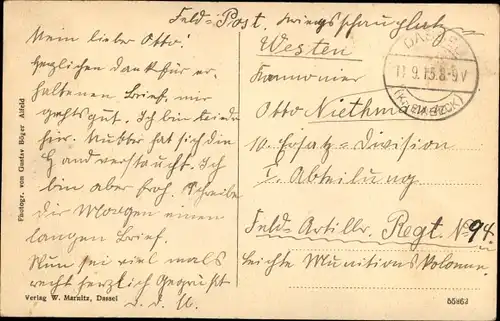 Feld-Post. Kriegsschauplatz
Westen
Mein lieber Otto!
Herzlichen Dank für er-
haltenen Brief, mir
gehts gut. Ich bin
hier. Mutter hat sich die
Hand verstaucht. Ich
bin aber froh. Schreibe
dir Morgen einen
langen Brief.
Nun sei viel mals
recht herzlich Gegrüßt
Kanonier
Otto Niethmann
10. Ersatz-Division
I. Abteilung
Feld-Artillr. Regt. No 94.
leichte Munitions Kolonne.
DASSEL
11.9.15.8-9V
(Kr. EINBECK)
Photogr. von Gustav Böger Alfeld
Verlag W. Marnitz, Dassel
55863